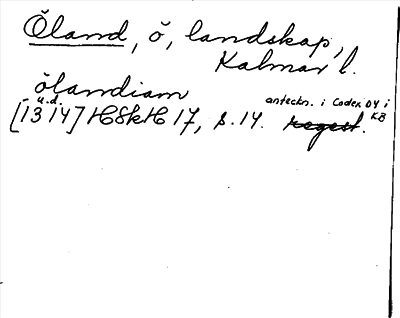 Öland, ö, landskap,
Kalmar l.
ölandiam
u.d.
anteckn. i Codex D4 i
KB
[1314] HSkH 17, s. 14. Regest.